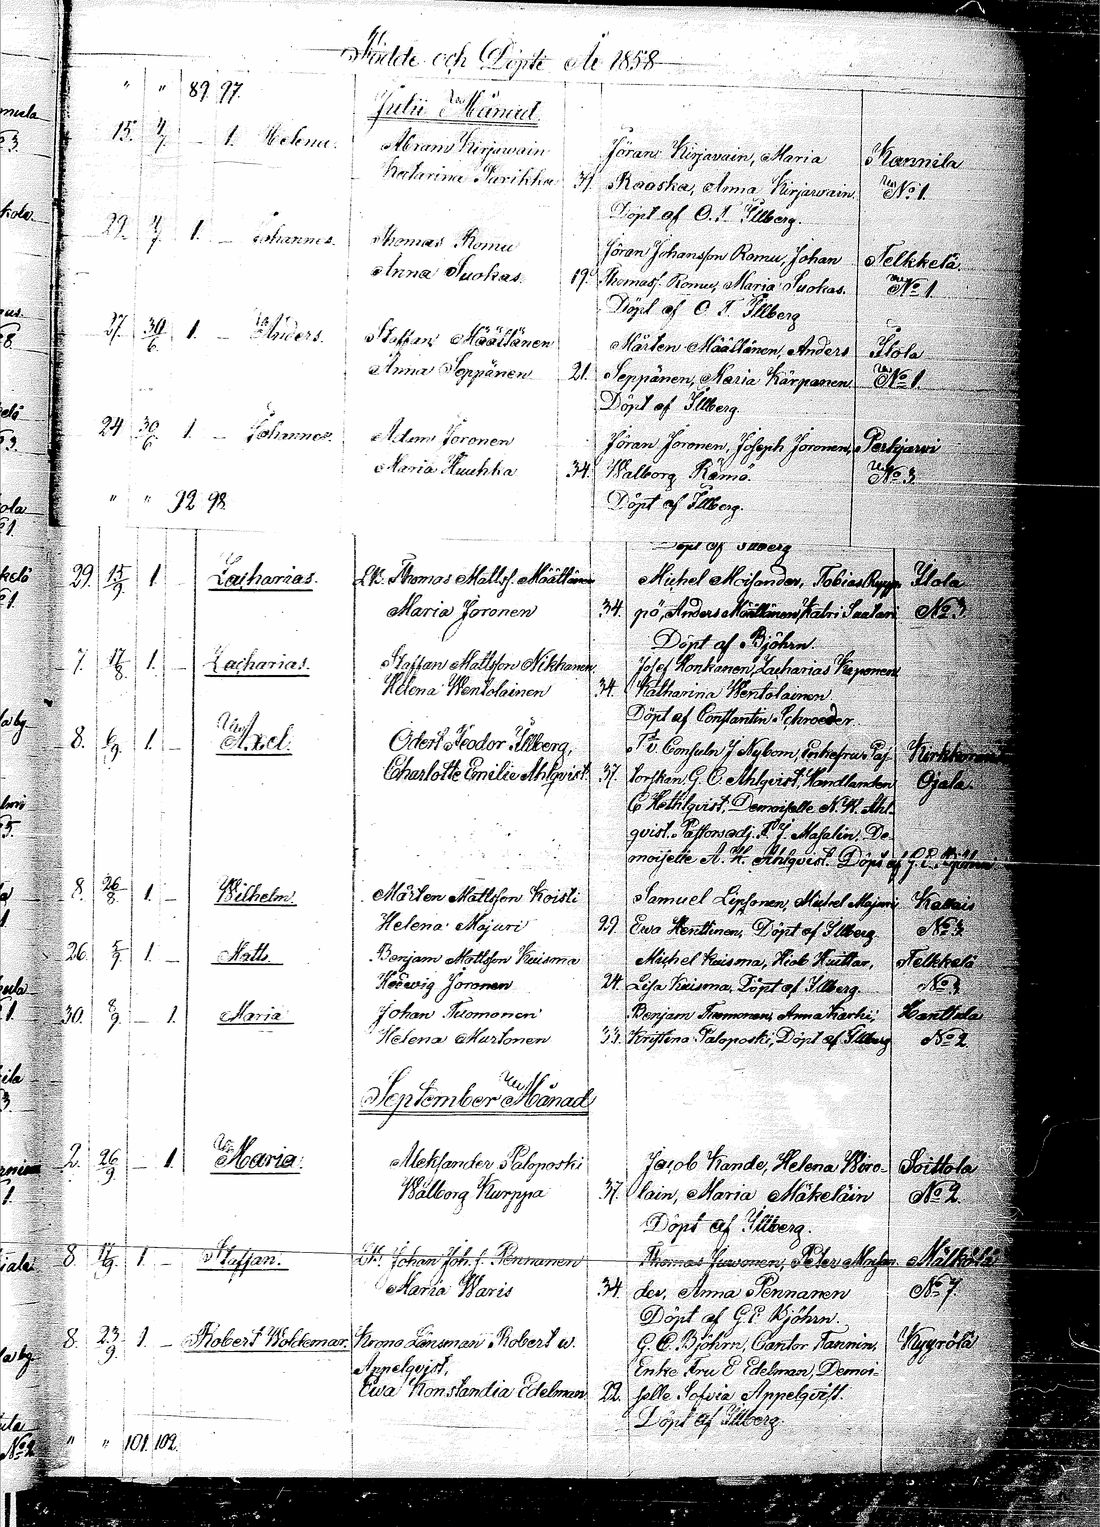 Födde och Döpte År 1858
" " 89 97.
Julii Månad.
15. 4/7 – 1. Helena. Abram Kirjawain Jöran Kirjavain, Maria Kannila
Katarina Turikka 37. Raaska, Anna Kirjawain No 1.
Döpt af O. T. Illberg.
29. 4/7 1. – Johannes. Thomas Romu Jöran Johansson Romu, Johan Telkkelä.
Anna Suokas. 19. Thomasf. Romu, Maria Suokas. No 1
Döpt af O T Illberg
27. 30/6 1. – Anders. Staffan Määttänen Mårten Määttänen, Anders Ilola
Anna Seppänen 21. Seppänen, Maria Kärpänen. No 1.
Döpt af Illberg.
24 30/6 1. – Johannes. Adam Joronen Jöran Joronen, Joseph Joronen, Perkjarwi
Maria Kuukka 34. Walborg Rämö. No 3.
" " 92 98. Döpt af Illberg.
Döpt af Illberg
29. 15/9 1. – Zacharias. Lb. Thomas Mattsf. Määttänen Michel Moisander, Tobias Ryyp Ilola
Maria Joronen 34. pö, Anders Määttänen, Katri Saatari No 3.
Döpt af Bjöhrn.
7. 17/8 1. – Zacharias. Staffan Mattsson Nikkanen Josef Honkanen, Zacharias Kaponen
Helena Wentolainen 34. Katharina Wentolainen
Döpt af Constantin Schroeder.
8. 6/9 1. – Axel. Odert Teodor Illberg, Consuln J Nybom, Enkefru Pas Kirkkomoisio
Charlotte Emilie Ahlqvist. 37. torskan G. C. Ahlqvist, Handlanden Ojala
C Hethlqvist, Demoiselle N. W. Ahl-
qvist. Pastorsadj. F. J. Masalin, De-
moiselle A. H. Ahlqvist. Döpt af G. E. Bjöhrn
8. 26/8 1. Wilhelm. Mårten Mattsson Koisti Samuel Lipsonen, Michel Majuri Kallais
Helena Majuri 29. Ewa Henttinen, Döpt af Illberg No 3.
26. 5/9 1. – Matts. Benjam Mattsson Kuisma Michel Kuisma, Hiob Huttar, Telkkelä
Hedwig Joronen 24. Lisa Kuisma, Döpt af Illberg No 3
30. 8/9 – 1. Maria Johan Tuomonen Benjam Tuomonen, Anna Karhi, Hanttula
Helena Murtonen 33. Kristina Paloposki, Döpt af Illberg No 2.
September Månad
2. 26/9 – 1. Maria. Aleksander Paloposki Jacob Kande, Helena Wiro- Soittola
Walborg Kurppa 37. lain, Maria Mäkeläin No 2.
Döpt af Illberg.
8. 17/9 1. – Staffan. Lb. Johan Joh. f. Pennanen Thomas Juvonen, Peter Moisan Mälkölä
Maria Waris 34. der, Anna Pennanen No 7.
Döpt af G. E. Bjöhrn.
8. 23/9 1. – Robert Woldemar. Krono Länsman Robert w. G. E. Bjöhrn, Cantor Tannin, Kyyrölä
Appelqvist, Enke Fru E Edelman, Demoi-
Ewa Konstandia Edelman 22. selle Sofvia Appelqvist.
Döpt af Illberg.
" " 101. 102.